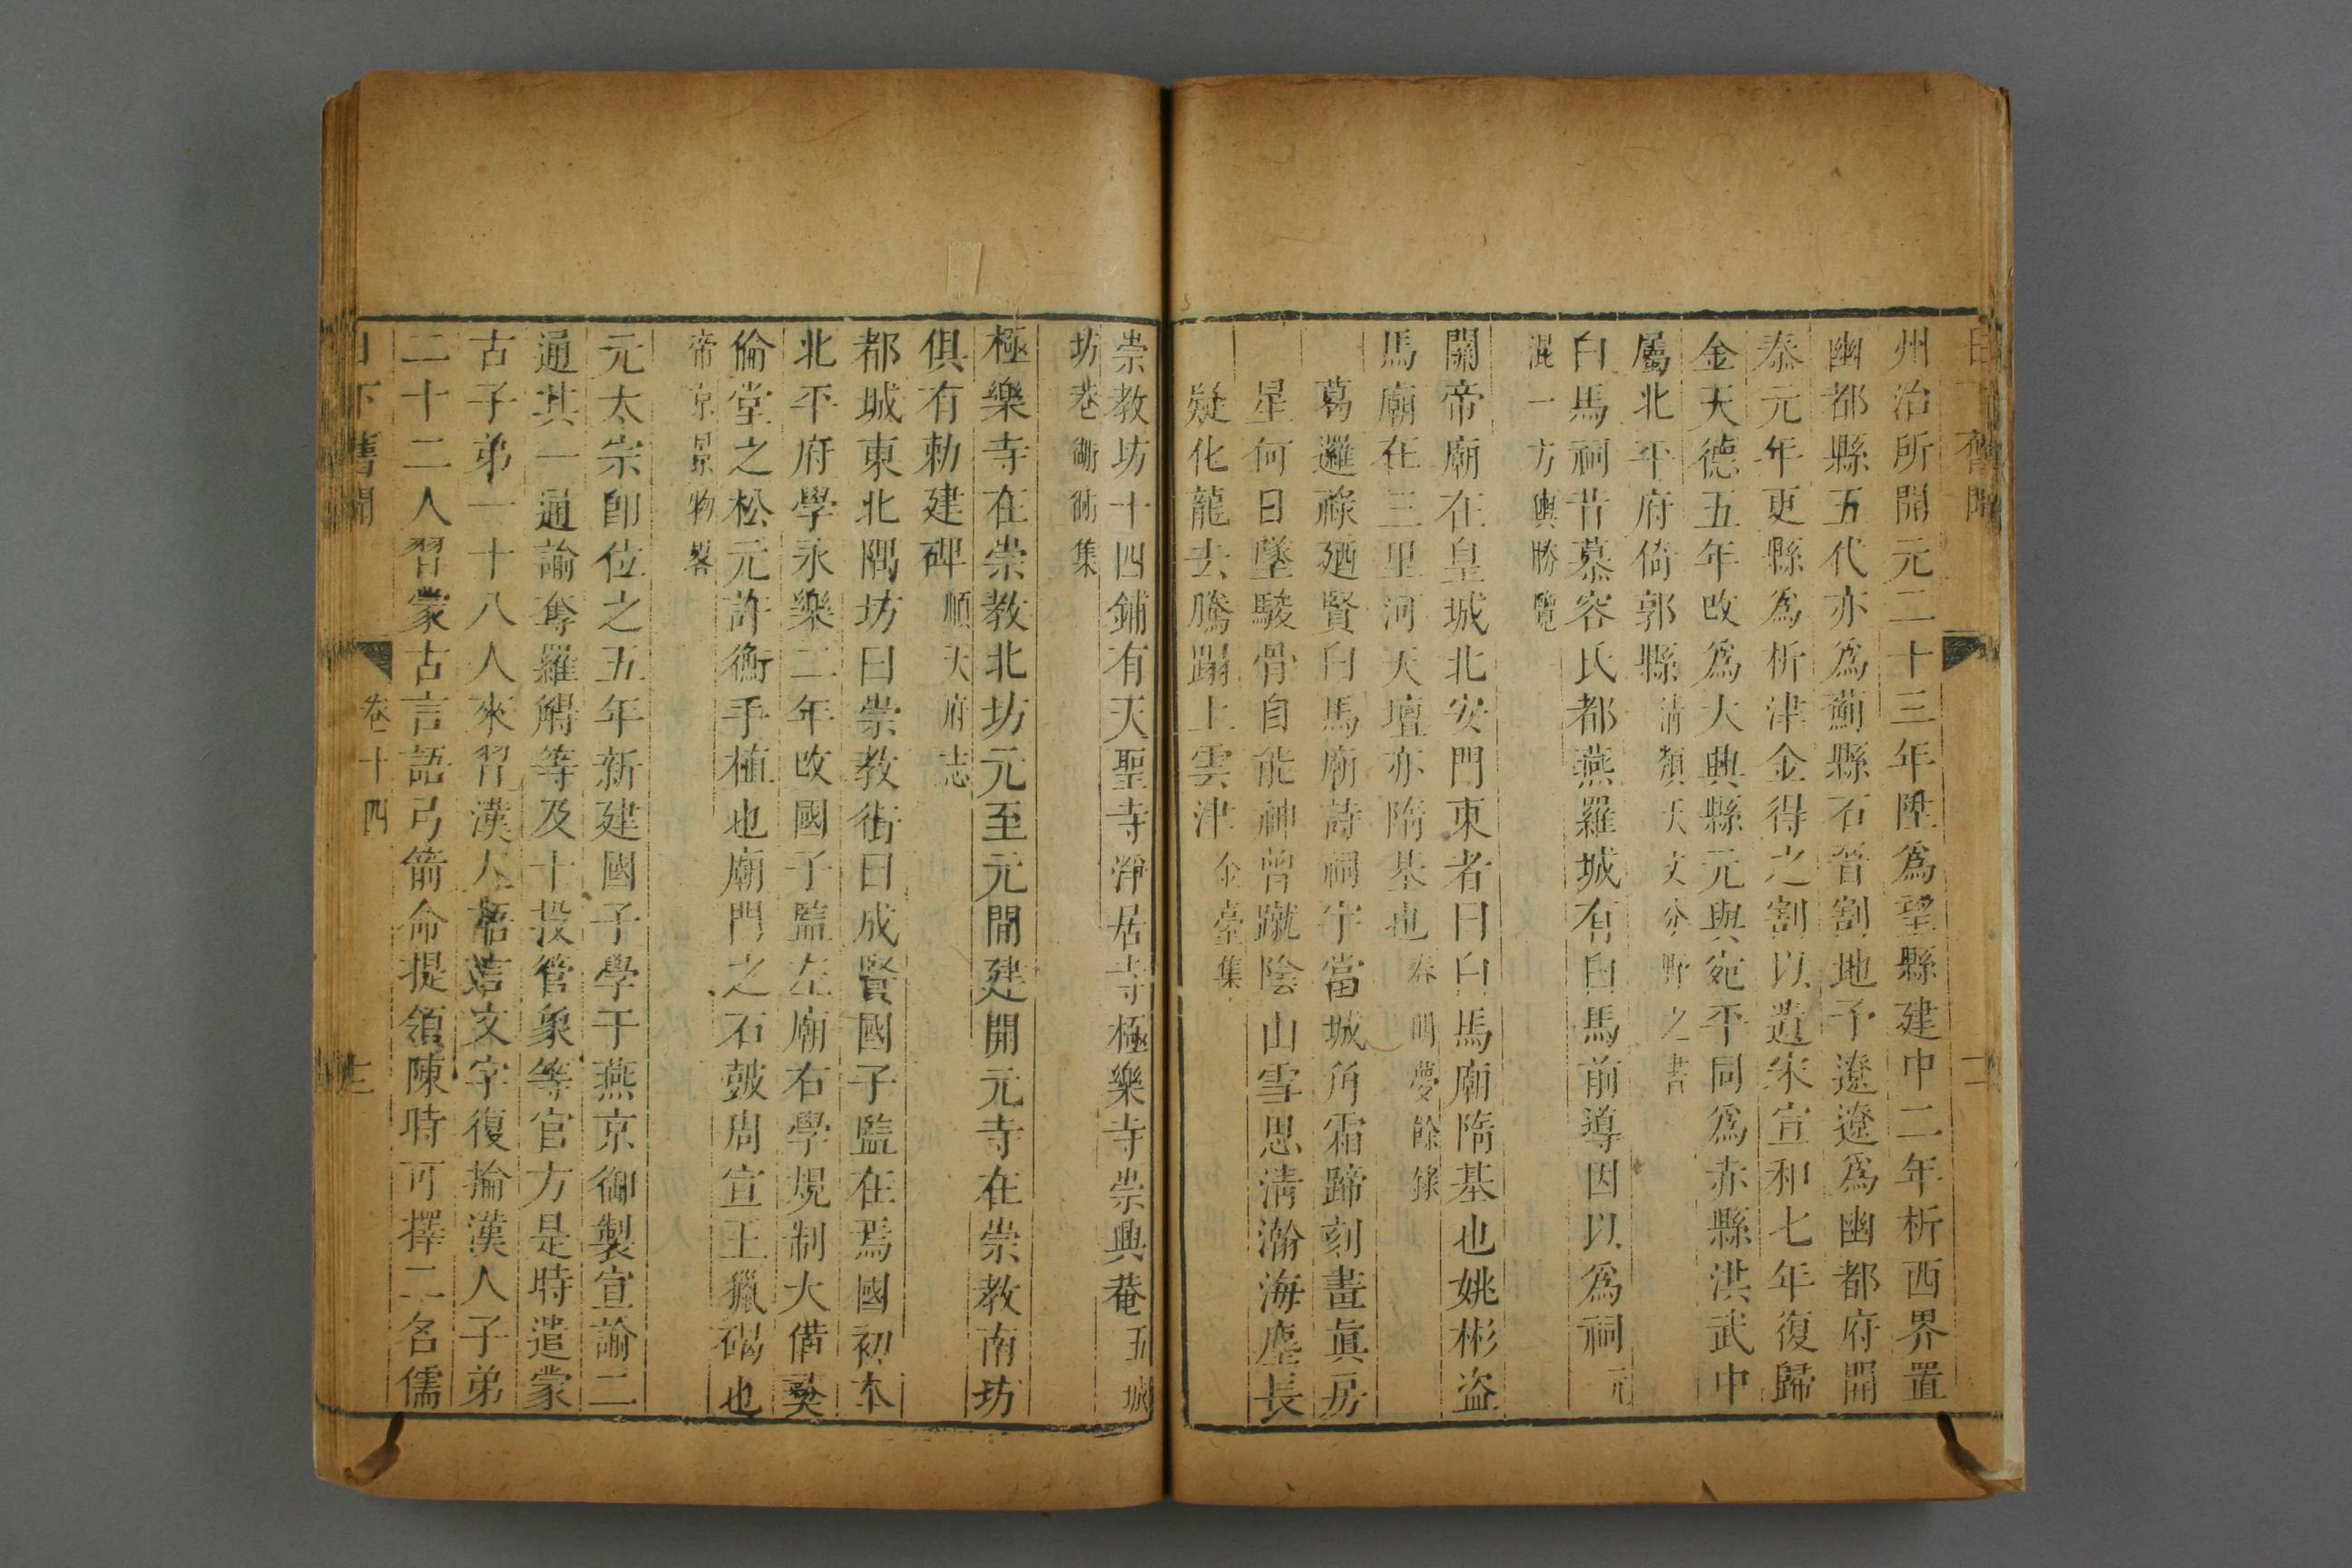 州治所開元二十三年陞爲望縣建中二年析西界置
幽都縣五代亦爲薊縣石晉割地予遼遼爲幽都府開
泰元年更縣爲析津金得之割以遺宋宣和七年復歸
金天德五年改爲大興縣元與宛平同爲赤縣洪武中
屬北平府倚郭縣清類天文分野之書
白馬祠昔慕容氏都燕羅城有白馬前導因以爲祠元
混一方輿勝覽
關帝廟在皇城北安門東者曰白馬廟隋基也姚彬盜
馬廟在三里河天壇亦隋基也春明夢餘錄
葛邏祿廼賢白馬廟詩祠宇當城角霜蹄刻畫眞房
星何日墜駿骨自能神曾蹴陰山雪思清瀚海塵長
疑化龍去騰蹋上雲津金臺集
崇教坊十四鋪有天聖寺淨居寺極樂寺崇興菴五城
坊巷衚衕集
極樂寺在崇教北坊元至元間建開元寺在崇教南坊
俱有勅建碑順天府志
都城東北隅坊曰崇教街曰成賢國子監在焉國初本
北平府學永樂二年改國子監左廟右學規制大備奠
倫堂之松元許衡手植也廟門之石鼓周宣王獵碣也
帝京景物畧
元太宗卽位之五年新建國子學于燕京御製宣諭二
通其一通諭奪羅觧等及十投管象等官方是時遣蒙
古子弟一十八人來習漢人語言文字復掄漢人子弟
二十二人習蒙古言語弓箭命提領陳時可擇二名儒
日下舊聞
卷十四